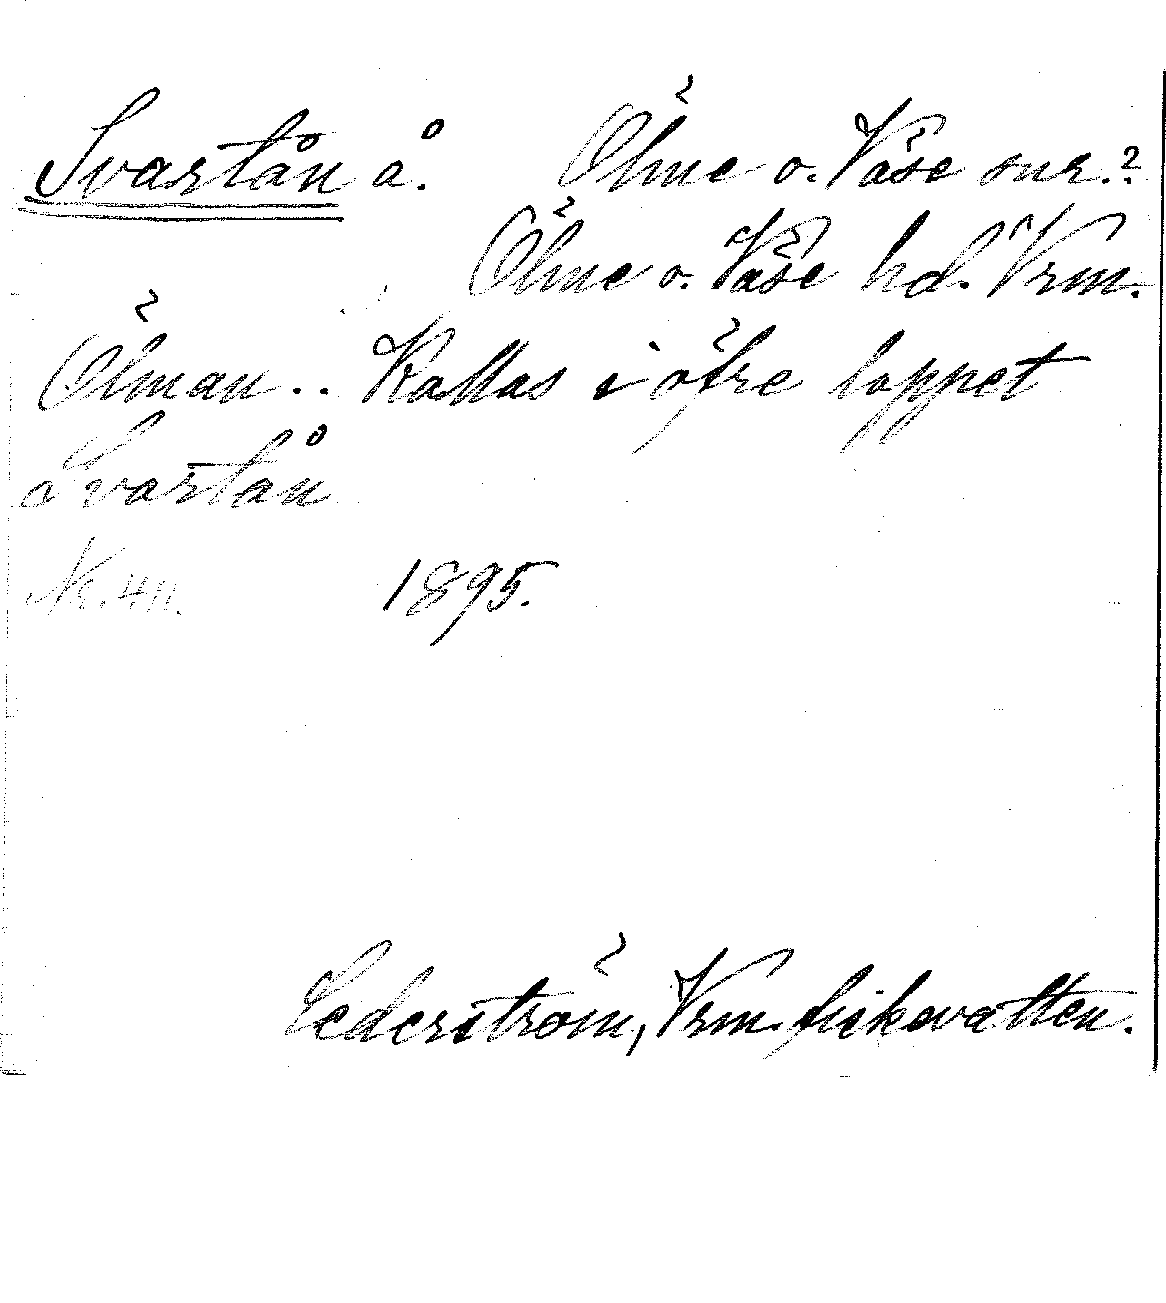 Svartån å. Ölme o. Väse snr.?
Ölme o. Väse hd. Vrm.
Ölman.. Kallas i öfre loppet
Svartån
Nr. 411. 1895.
Cederström, Vrm. fiskevatten.